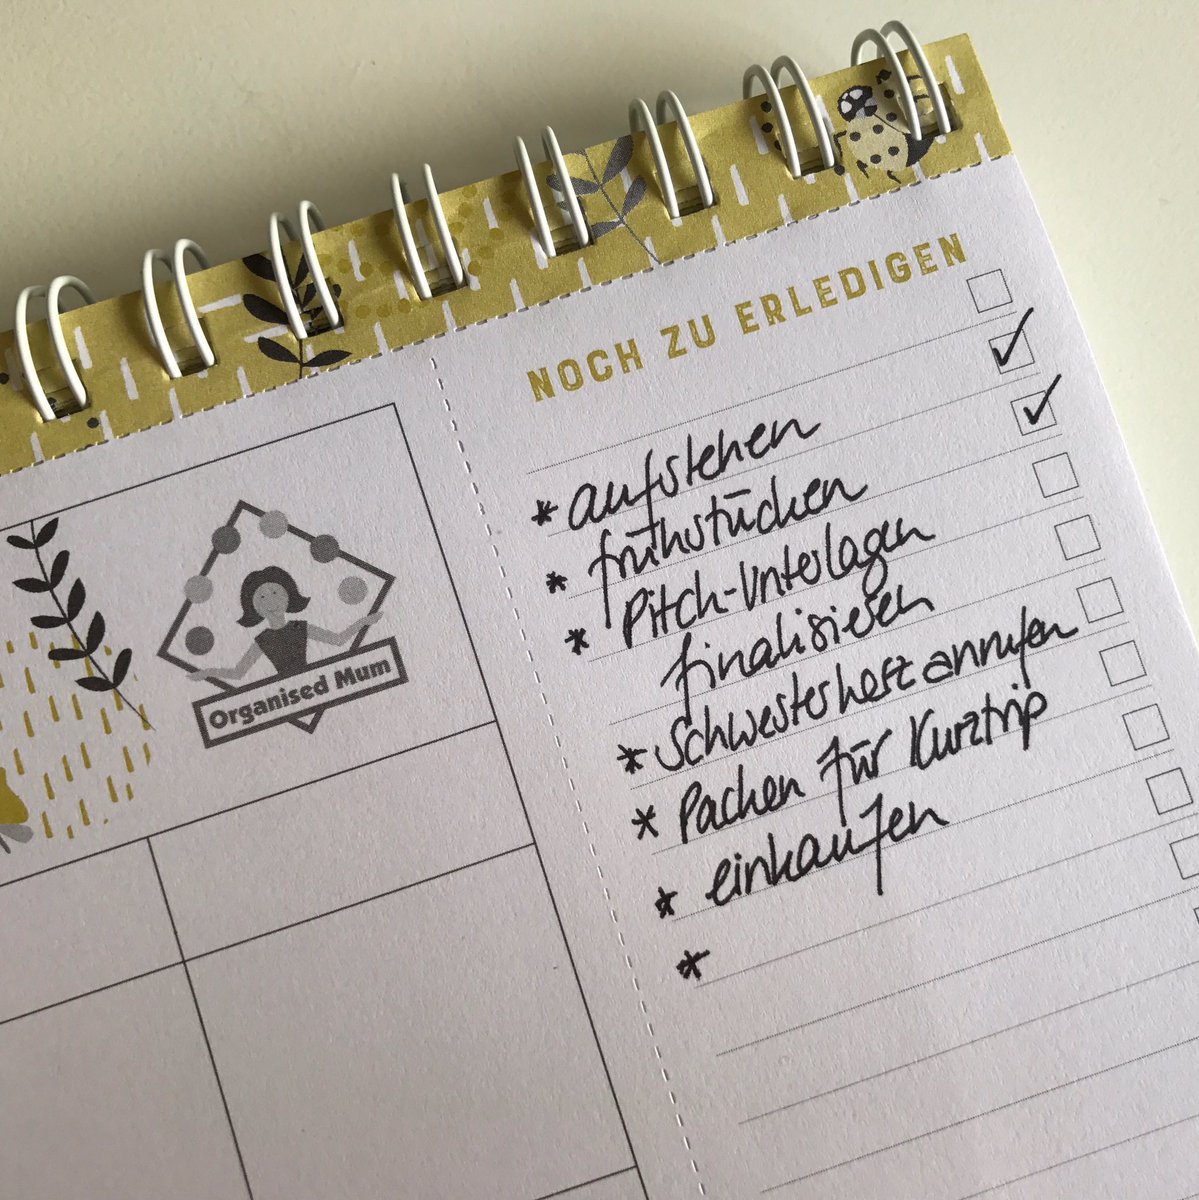 NOCH ZU ERLEDIGEN
* aufstehen
* frühstücken
* Pitch-Unterlagen
finalisieren
* Schwesterherz anrufen
* Packen für Kurztrip
* einkaufen
*
Organised Mum